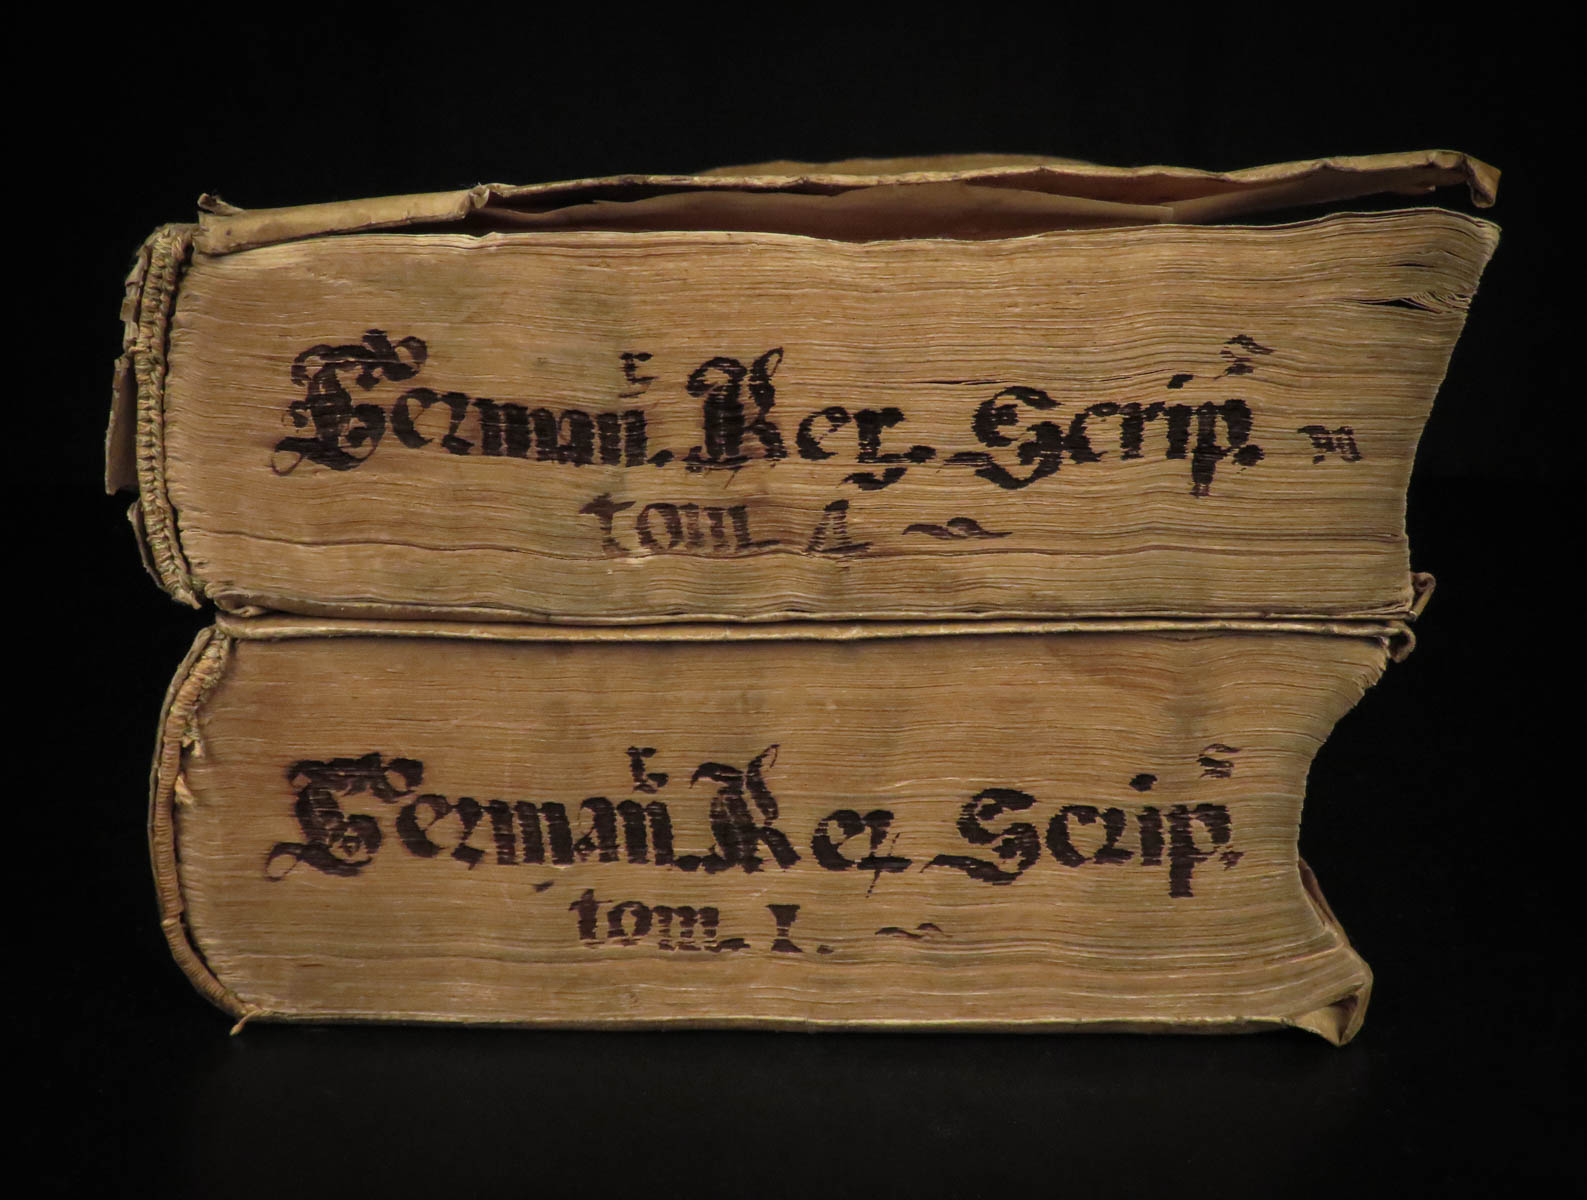 German̄. Rer. Scrip.
tom. 4
German̄. Rer. Scrip.
tom. I.